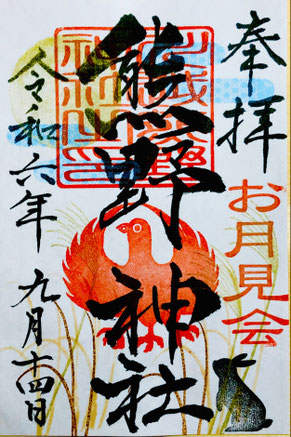 奉拝
お月見会
熊野神社
令和六年九月十四日